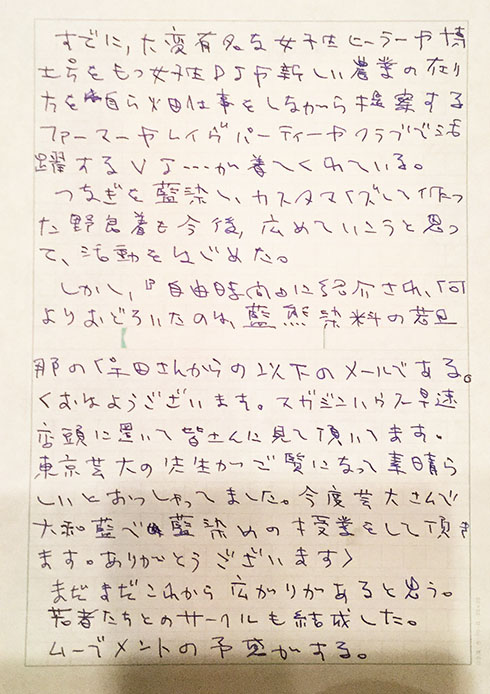 すでに，大変有名な女子性ヒーラーや博
士号をもつ女子性DJや新しい農業の在り
方を自ら畑仕事をしながら提案する
ファーマーやレイヴパーティーやクラブで活
躍するVJ…が着てくれている。
つなぎを藍染し、カスタマイズして作っ
た野良着も今後，広めていこうと思っ
て、活動をはじめた。
しかし，『自由時間』に紹介され、何
よりおどろいたのは、藍熊染料の若旦
那の早田さんからの以下のメールである。
〈おはようございます。マガジンハウス早速
店頭に置いて皆さんに見て頂いてます。
東京芸大の先生がご覧になって素晴ら
しいとおっしゃってました。今度芸大さんで
大和藍で藍染めの授業をして頂き
ます。ありがとうございます〉
まだまだこれから広がりがあると思う。
若者たちとのサークルも結成した。
ムーブメントの予感がする。